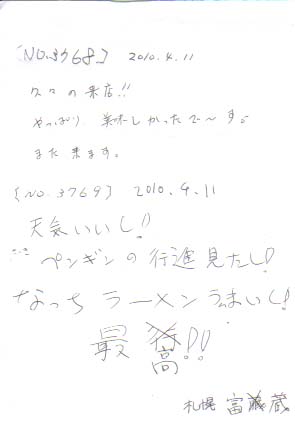 [NO.3768] 2010.4.11
久々の来店!!
やっぱり 美味しかったで〜す。
また来ます。
[NO.3769] 2010.4.11
天気いいし!
ペンギンの行進見たし!
なっちラーメンうまいし!
最高!!
札幌 富蔵